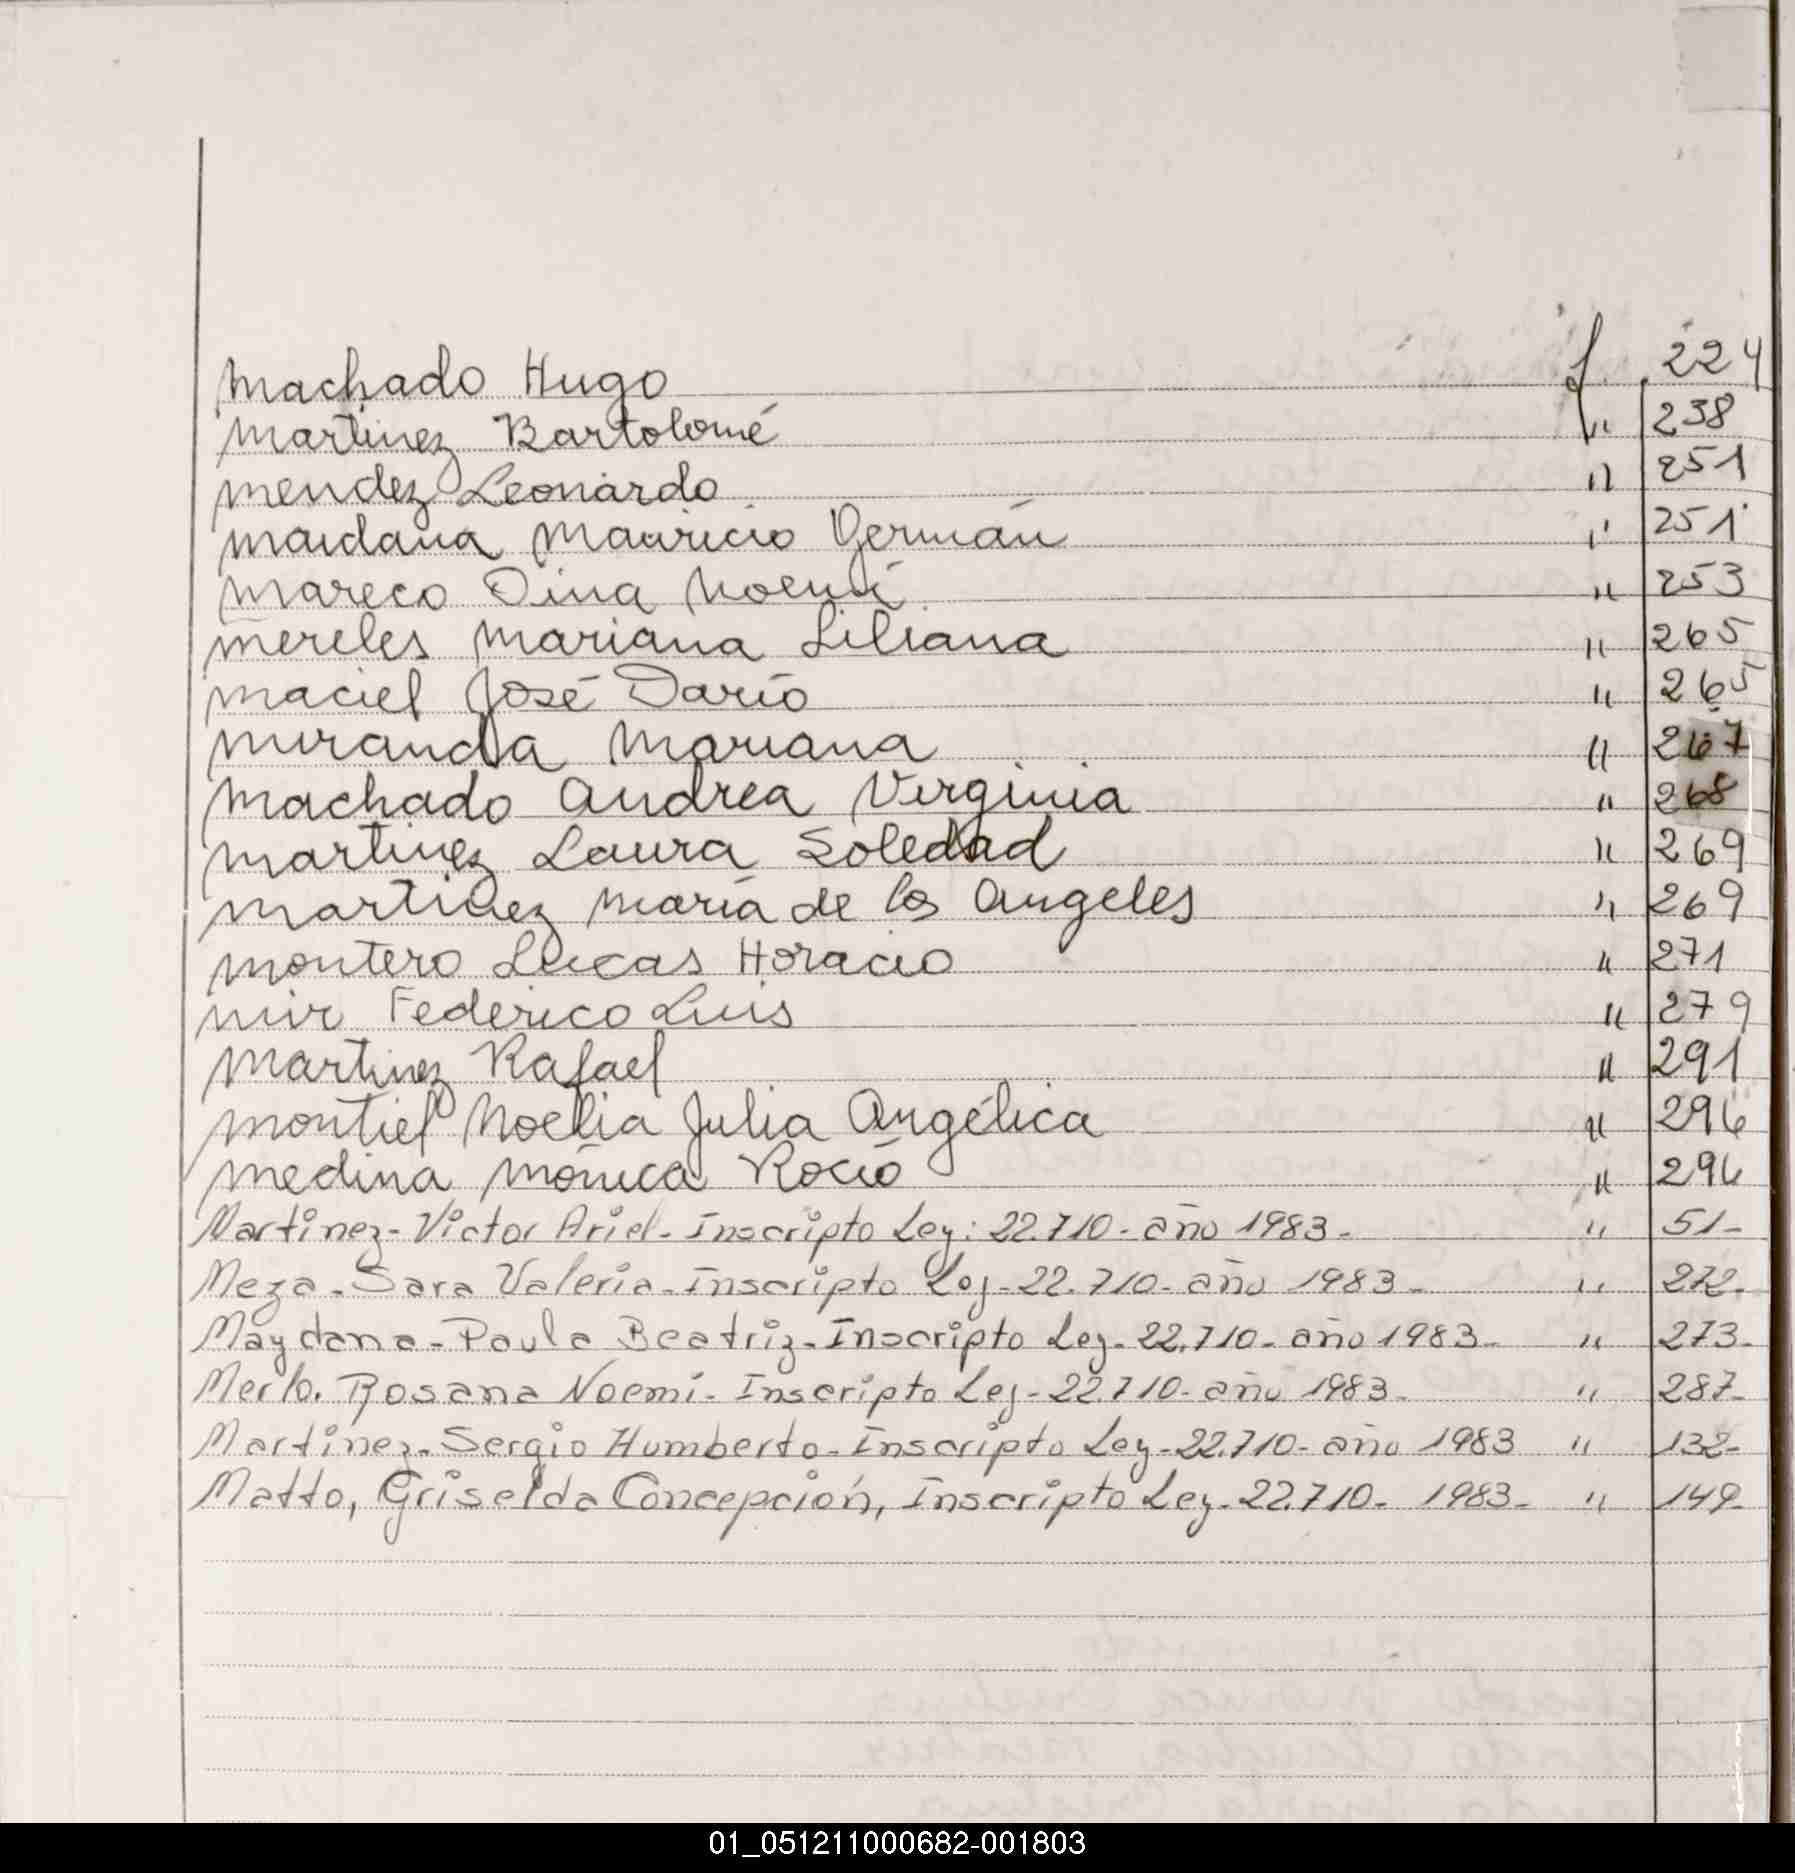 Machado Hugo f. 224
Martinez Bartolomé " 238
Mendez Leonardo " 251
Maidana Mauricio Germán " 251
Mareco Dina Noemí " 253
Mereles Mariana Liliana " 265
Maciel José Darío " 265
Miranda Mariana " 267
Machado Andrea Virginia " 268
Martinez Laura Soledad " 269
Martinez María de los Angeles " 269
Montero Lucas Horacio " 271
Mir Federico Luis " 279
Martinez Rafael " 291
Montiel Noelia Julia Angélica " 296
Medina Mónica Rocío " 296
Martinez - Victor Ariel - Inscripto Ley: 22.710 - año 1983 - " 51-
Meza - Sara Valeria - Inscripto Ley - 22.710 - año 1983 - " 272-
Maydana - Paula Beatriz - Inscripto Ley - 22.710 - año 1983 - " 273-
Merlo. Rosana Noemí - Inscripto Ley - 22.710 - año 1983 - " 287-
Martinez - Sergio Humberto - Inscripto Ley - 22.710 - año 1983 " 132-
Matto, Griselda Concepción, Inscripto Ley - 22.710 - 1983 - " 149-
01_051211000682-001803